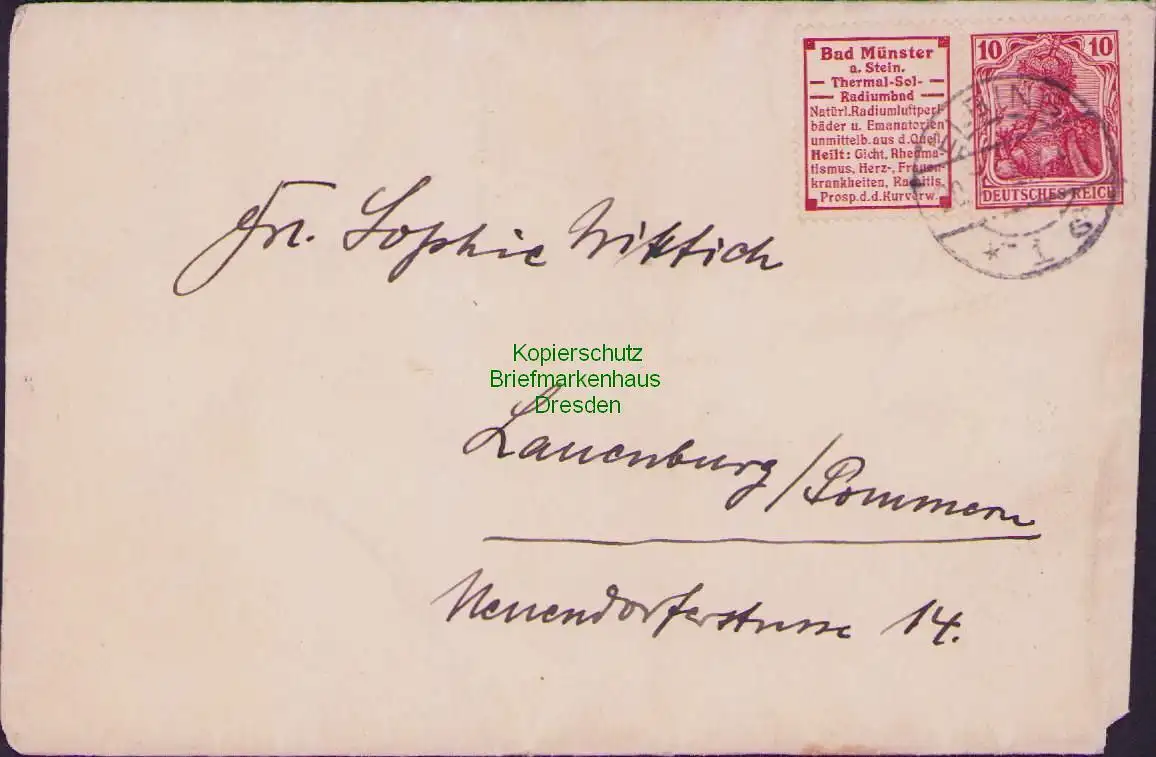 Bad Münster
a. Stein.
Thermal-Sol-
Radiumbad
Natürl. Radiumluftperl
bäder u. Emanatorien
unmittelb. aus d. Quell.
Heilt: Gicht, Rheuma-
tismus, Herz-, Frauen-
krankheiten, Rachitis
Prosp. d. d. Kurverw.
10 10
DEUTSCHES REICH
Frl. Sophie Wittich
Kopierschutz
Briefmarkenhaus
Dresden
Lauenburg/Pommern
Neuendorferstrasse 14.